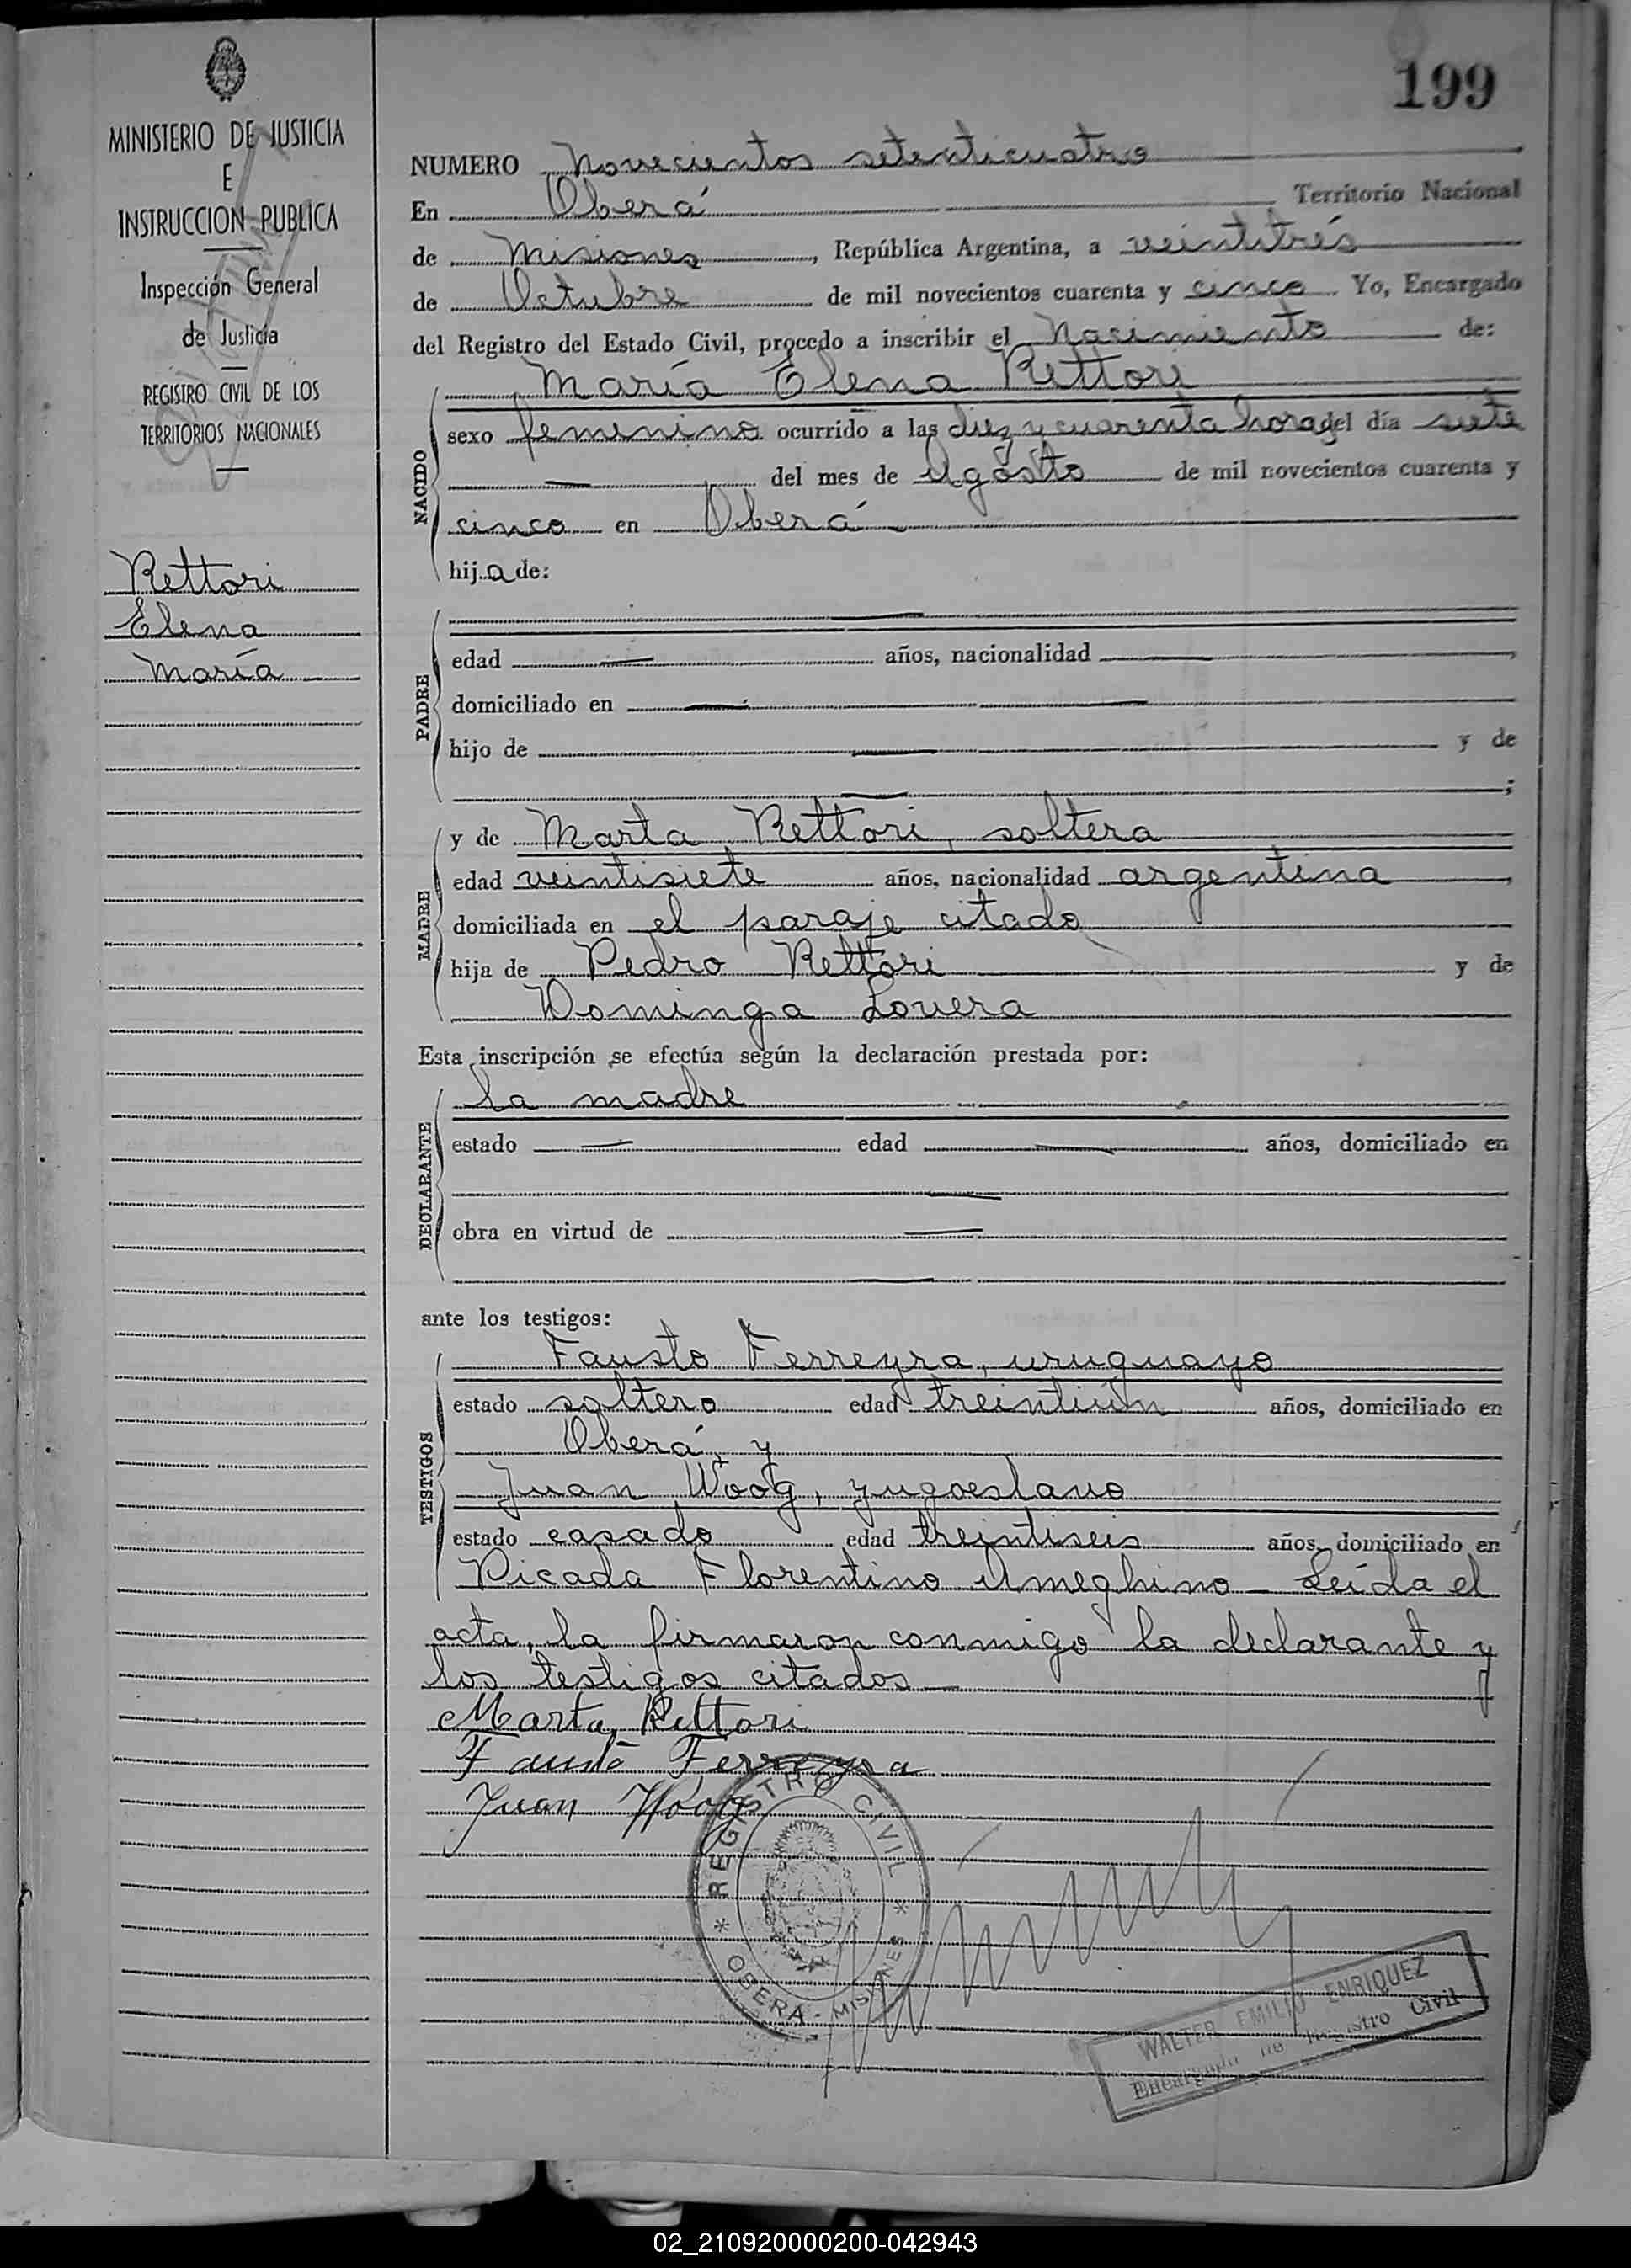 199
MINISTERIO DE JUSTICIA
E
INSTRUCCION PUBLICA
Inspección General
de Justicia
REGISTRO CIVIL DE LOS
TERRITORIOS NACIONALES
Rettori
Elena
María
NUMERO novecientos setenticuatro
En Oberá Territorio Nacional
de Misiones, República Argentina, a veintitrés
de Octubre de mil novecientos cuarenta y cinco. Yo, Encargado
del Registro del Estado Civil, procedo a inscribir el Nacimiento de:
María Elena Rettori
NACIDO
sexo femenino ocurrido a las diez y cuarenta horas del día siete
— del mes de Agosto de mil novecientos cuarenta y
cinco en Oberá —
hija de:
PADRE
—
edad — años, nacionalidad —
domiciliado en — —
hijo de — y de
— ;
MADRE
y de Marta Rettori, soltera
edad veintisiete años, nacionalidad argentina,
domiciliada en el paraje citado
hija de Pedro Rettori y de
Dominga Lovera
Esta inscripción se efectúa según la declaración prestada por:
DECLARANTE
la madre
estado — edad — años, domiciliado en
—
obra en virtud de —
—
ante los testigos:
TESTIGOS
Fausto Ferreyra, uruguayo
estado soltero edad treintiún años, domiciliado en
Oberá, y
Juan Woog, yugoeslavo
estado casado edad treintiseis años, domiciliado en
Picada Florentino Ameghino — Leída el
acta, la firmaron conmigo la declarante y
los testigos citados —
Marta Rettori
Fausto Ferreyra
Juan Woog
REGISTRO CIVIL
* OBERA - MISIONES *
WALTER EMILIO ENRIQUEZ
Encargado de Registro Civil
02_210920000200-042943